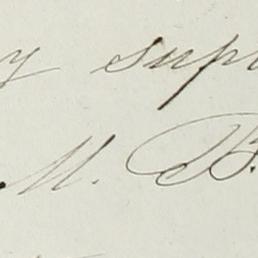 y sup
M. B.